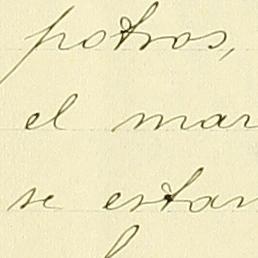 potros,
el mar
se estan